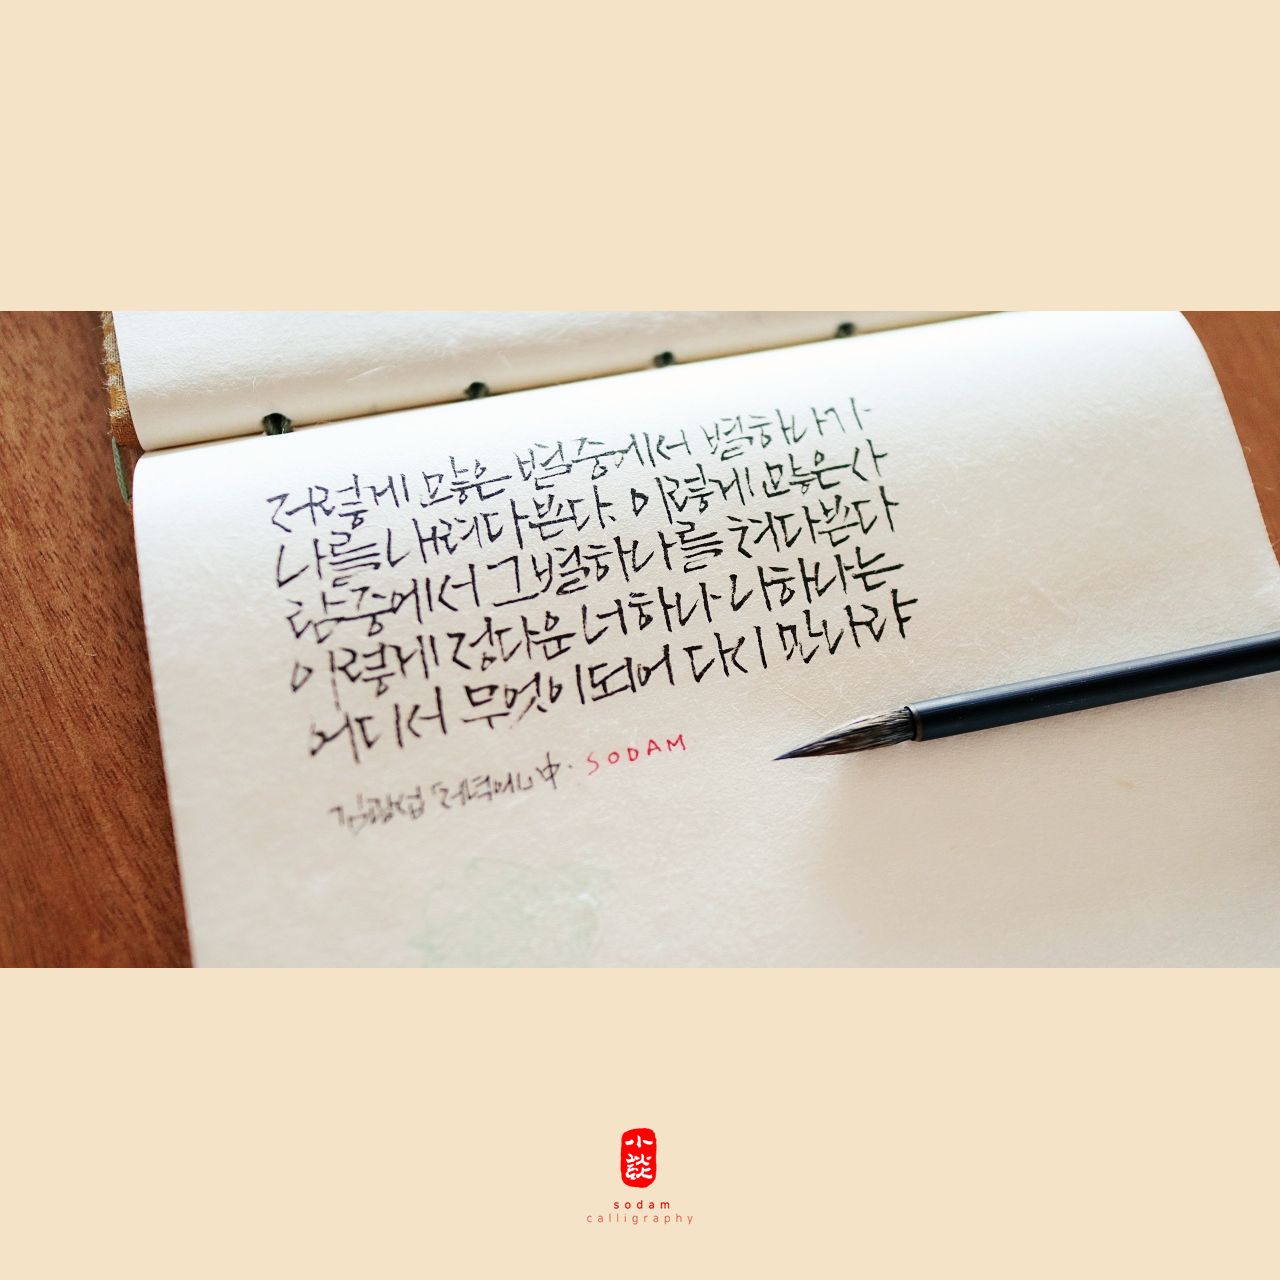 저렇게 많은 별중에서 별하나가
나를 내려다본다. 이렇게 많은 사
람중에서 그별하나를 쳐다본다
이렇게 정다운 너하나 나하나는
어디서 무엇이되어 다시 만나랴
김광섭 「저녁에」中. SODAM
小談
sodam
calligraphy